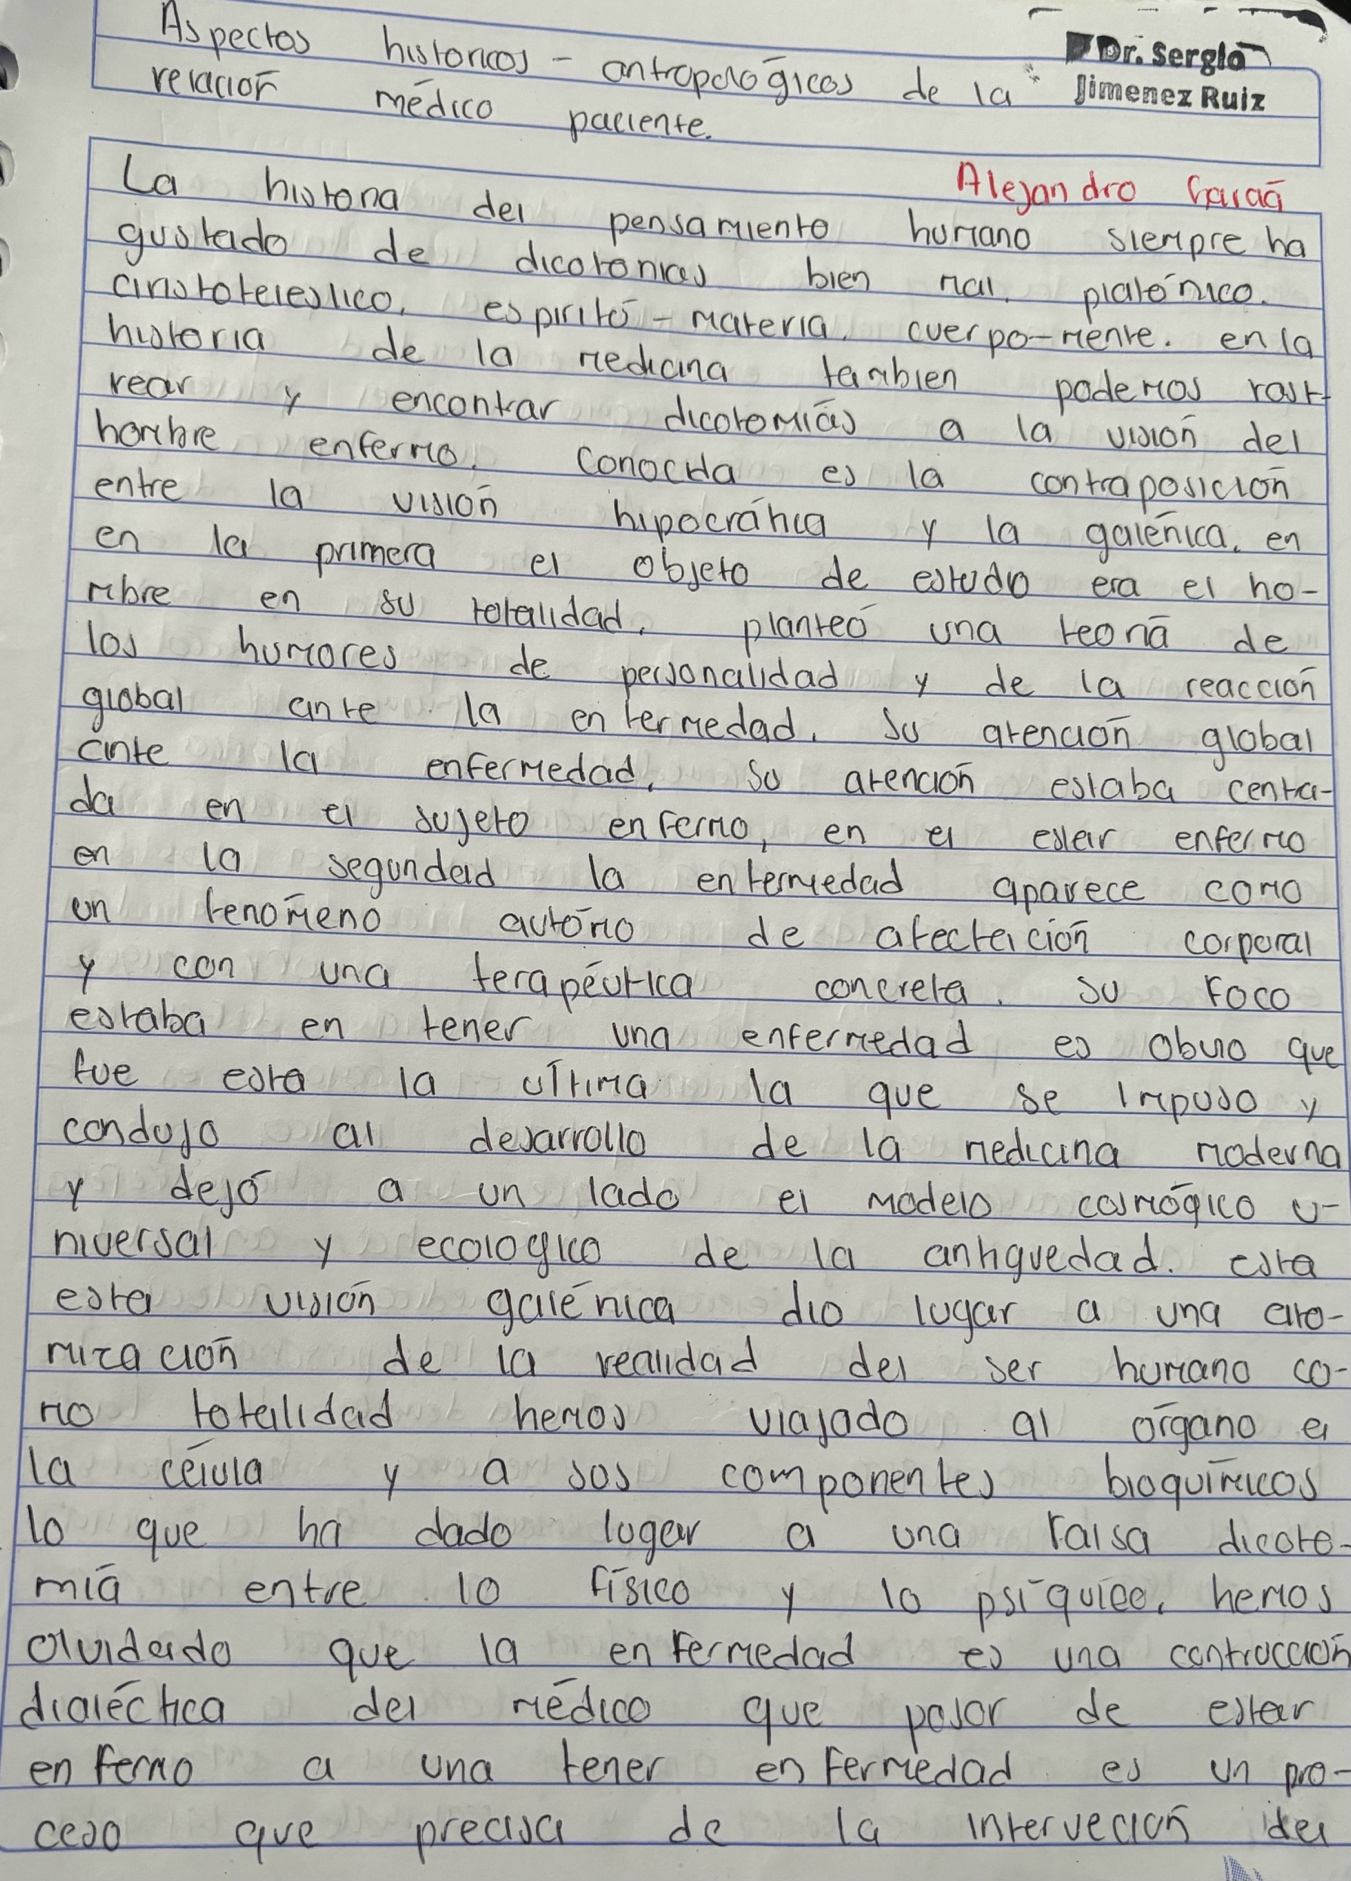 Aspectos historicos - antropológicos de la
Dr. Sergio
Jimenez Ruiz
relación médico paciente.
Alejandro
La historia del pensamiento humano siempre ha
gustado de dicotonias bien mal, platónico.
aristotelestico, espiritó - materia, cuerpo-mente. en la
historia de la medicina tambien podemos rast-
rear y encontrar dicotomías a la visión del
hombre enfermo. Conocida es la contraposición
entre la visión hipocrática y la galénica, en
en la primera el objeto de estudio era el ho-
mbre en su totalidad, planteó una teoría de
los humores de personalidad y de la reacción
global ante la enfermedad. Su atención global
ante la enfermedad, so atención estaba centra-
da en el sujeto enfermo, en el estar enfermo
en la segundad la enfermedad aparece como
un fenómeno autómo de afectación corporal
y con una terapéutica concreta. su foco
estaba en tener una enfermedad es obvio que
fue esta la última la que se impuso y
condujo al desarrollo de la medicina moderna
y dejó a un lado el modelo cosmógico u-
niversal y ecologico de la antiguedad. esta
esta visión galénica dio lugar a una ato-
mización de la realidad del ser humano co-
mo totalidad hemos viajado al órgano a
la célula y a sos componentes bioquímicos
lo que ha dado lugar a una falsa dicoto-
mía entre lo físico y lo psíquico, hemos
olvidado que la enfermedad es una contrucción
dialéctica del médico que pasar de estar
enfermo a una tener enfermedad es un pro-
ceso que precisa de la interveción del